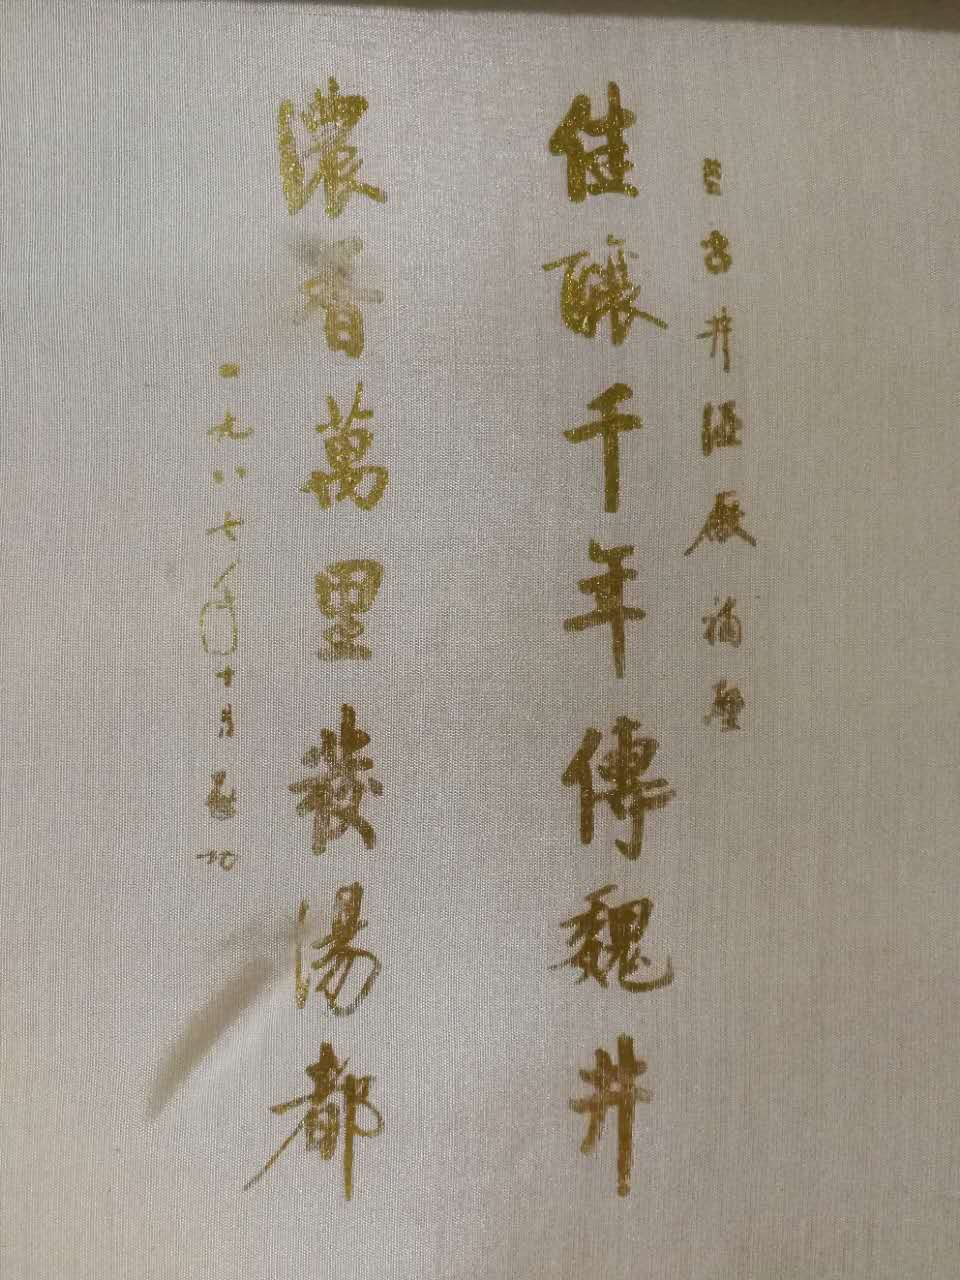 古井酒廠補壁
佳釀千年傳魏井
濃香萬里發湯都
一九八七年十月 啟功